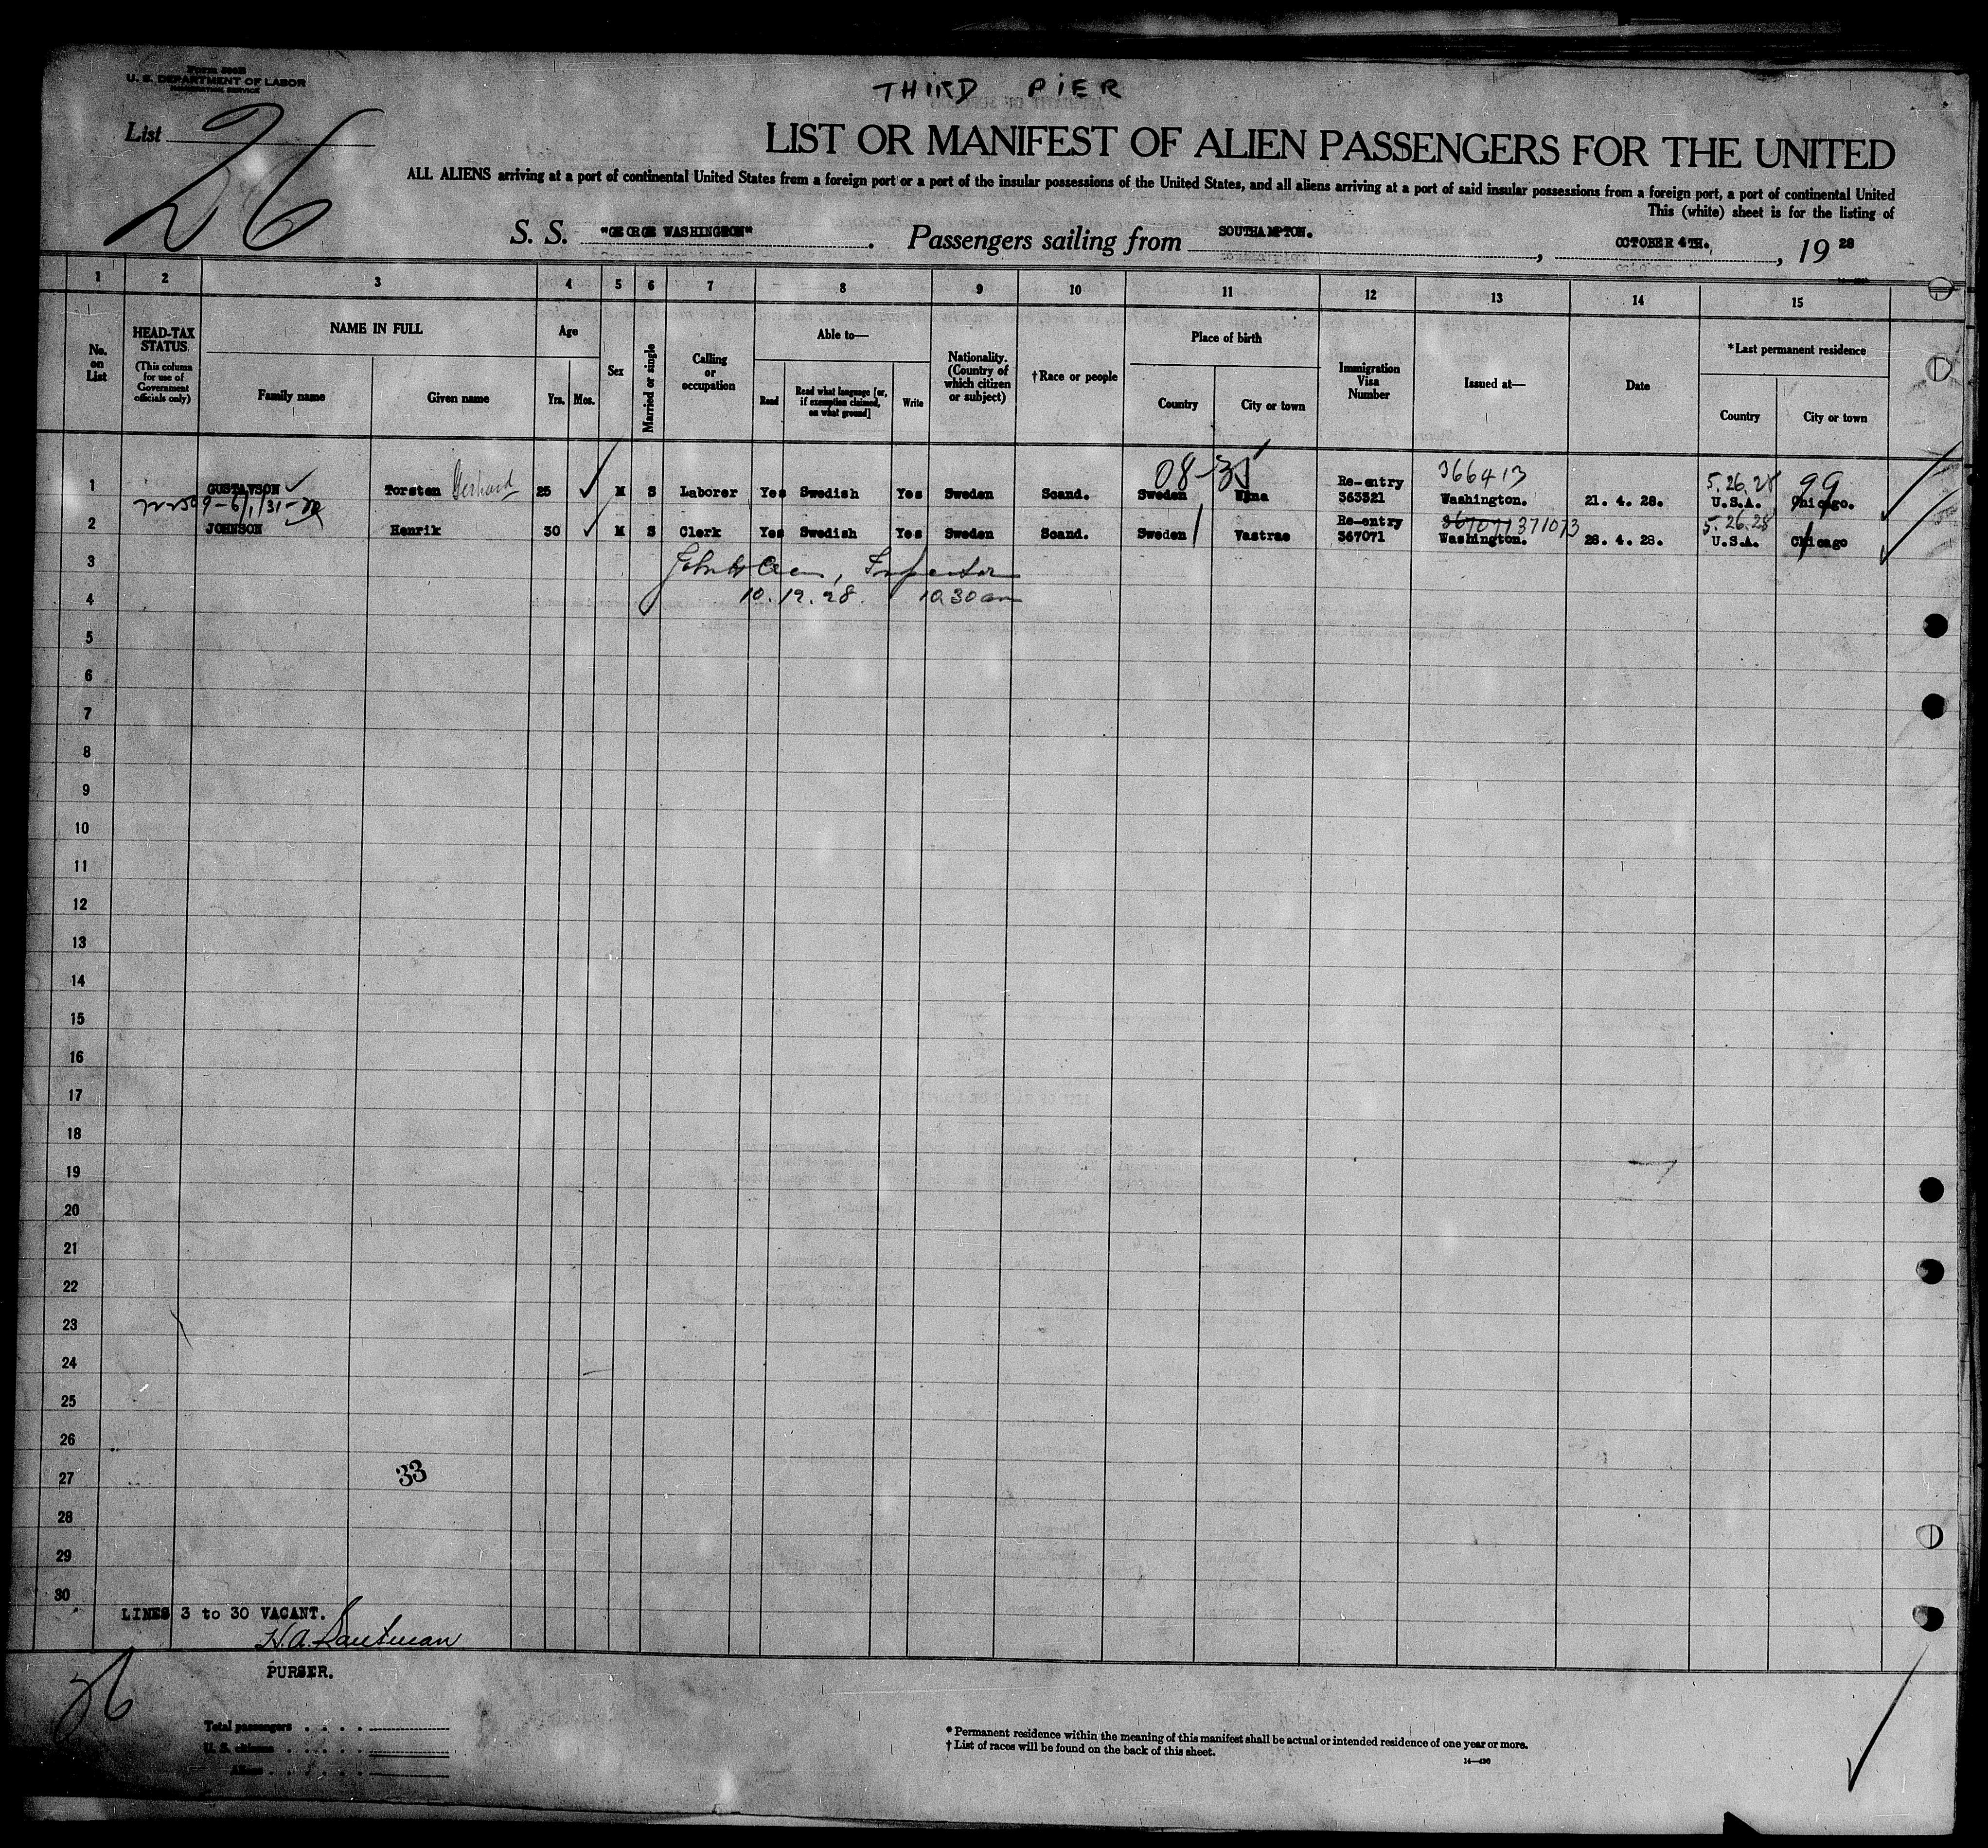 Form 500B
U. S. DEPARTMENT OF LABOR
IMMIGRATION SERVICE
THIRD PIER
List 26
LIST OR MANIFEST OF ALIEN PASSENGERS FOR THE UNITED
ALL ALIENS arriving at a port of continental United States from a foreign port or a port of the insular possessions of the United States, and all aliens arriving at a port of said insular possessions from a foreign port, a port of continental United
This (white) sheet is for the listing of
S. S. "GEORGE WASHINGTON" . Passengers sailing from SOUTHAMPTON. , OCTOBER 4TH. , 19 28
1 2 3 4 5 6 7 8 9 10 11 12 13 14 15
No. on List
HEAD-TAX STATUS
(This column for use of Government officials only)
NAME IN FULL
Family name Given name
Age
Yrs. Mos.
Sex
Married or single
Calling or occupation
Able to—
Read
Read what language [or, if exemption claimed, on what ground]
Write
Nationality. (Country of which citizen or subject)
†Race or people
Place of birth
Country City or town
Immigration Visa Number
Issued at—
Date
*Last permanent residence
Country City or town
08-35 366413 5.26.28 99
1 GUSTAVSON Torsten 25 M S Laborer Yes Swedish Yes Sweden Scand. Sweden Re-entry 363321 Washington. 21. 4. 28. U.S.A. Chicago.
367071 371073 5.26.28
2 JOHNSON Henrik 30 M S Clerk Yes Swedish Yes Sweden Scand. Sweden Vastrae Re-entry 367071 Washington. 28. 4. 28. U.S.A. Chicago
3 Inspector
4 10.12.28. 10 30 am
5
6
7
8
9
10
11
12
13
14
15
16
17
18
19
20
21
22
23
24
25
26
27 33
28
29
30
LINES 3 to 30 VACANT.
PURSER.
26
Total passengers
U. S. citizens
Aliens
* Permanent residence within the meaning of this manifest shall be actual or intended residence of one year or more.
† List of races will be found on the back of this sheet.
14—430